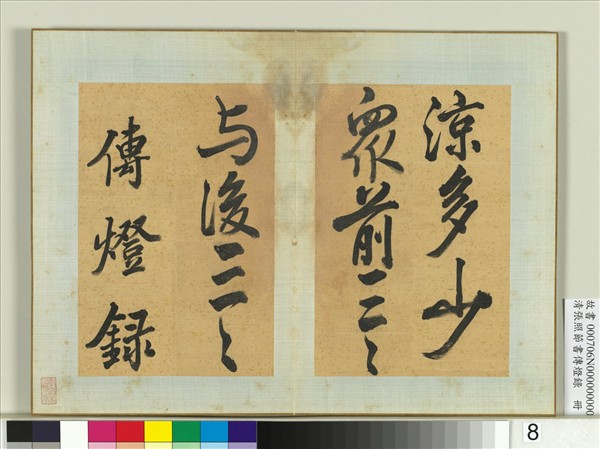 涼多少
衆前三〻
与後三〻
傳燈録
故書 000706N000000000
清張照節書傳燈錄 冊
8